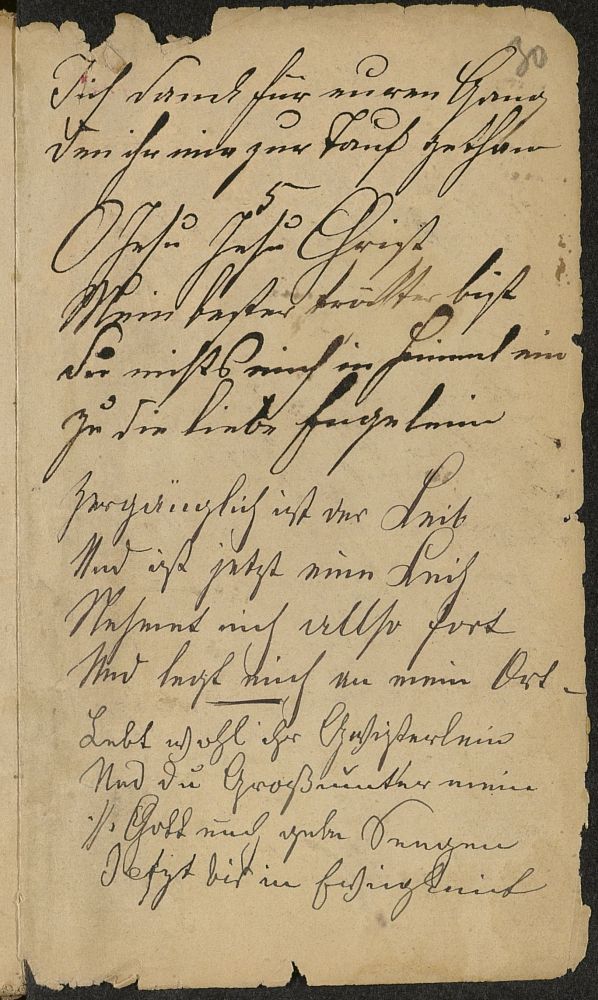 30
Ich dank für euren Gang
Den ihr mir zur Tauf gethan
5
O Jesu Jesu Christ
Mein bester tröster bist
du mich in Himmel ein
zu die liebe Engelein
Vergänglich ist der Leib
Und ist jetzt eine Leich
Nehmet mich allso fort
Und legt mich an mein Ort
Lebt wohl ihr Gschisterlein
Und du Großmutter mein
Gott euch gebe Seegen
Jetzt bis in Ewigkeit